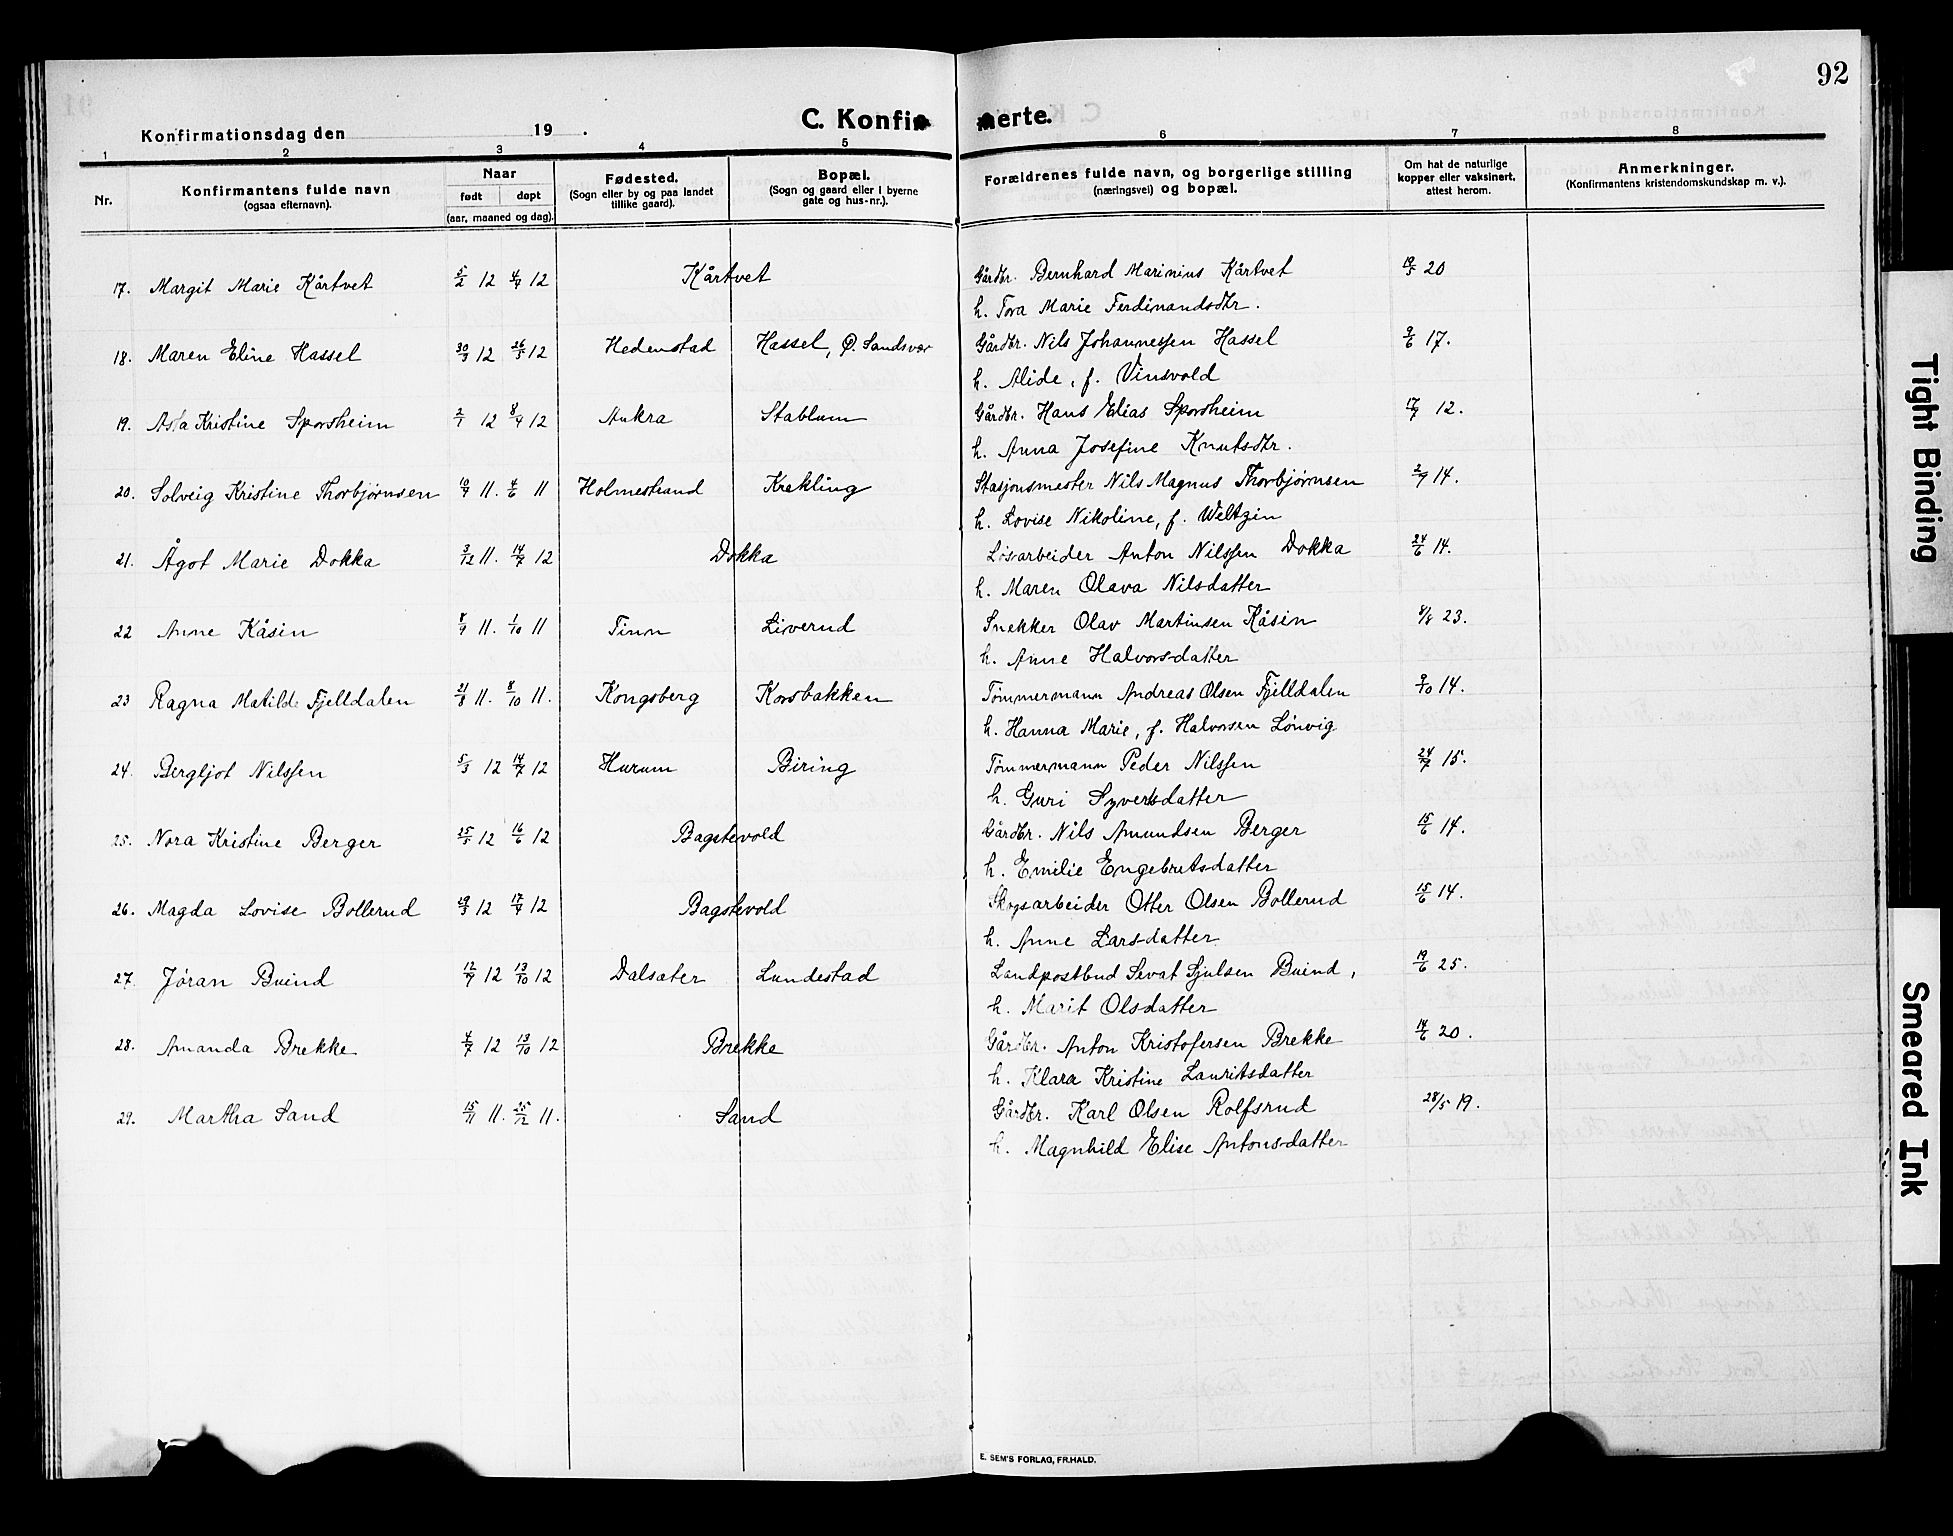 92
Konfirmationsdag den 19 .
C. Konfir merte.
1 2 3 4 5 6 7 8
Nr.
Konfirmantens fulde navn
(ogsaa efternavn).
Naar
født døpt
(aar, maaned og dag).
Fødested.
(Sogn eller by og paa landet
tillike gaard).
Bopæl.
(Sogn og gaard eller i byerne
gate og hus-nr.).
Forældrenes fulde navn, og borgerlige stilling
(næringsvei) og bopæl.
Om hat de naturlige
kopper eller vaksinert,
attest herom.
Anmerkninger.
(Konfirmantens kristendomskundskap m. v.).
17. Margit Marie Kårtvet 5/2 12 4/4 12 Kårtvet Gårdbr. Bernhard Marinius Kårtvet 19/5 20
h. Tora Marie Ferdinandsdtr.
18. Maren Eline Hassel 30/3 12 26/5 12 Hedenstad Hassel, Ø. Sandsvær Gårdbr. Nils Johannessen Hassel 9/6 17.
h. Alide, f. Vinsvold
19. Asta Kristine Sporsheim 2/1 12 8/4 12 Aukra Stablum Gårdbr. Hans Elias Sporsheim 17/9 12.
h. Anna Josefine Knutsdtr.
20. Solveig Kristine Thorbjørnsen 10/4 11. 4/6 11 Holmestrand Krekling Stasjonsmester Nils Magnus Thorbjørnsen 2/9 14.
h. Lovise Nikoline, f. Weltzin
21. Ågot Marie Dokka 3/12 11. 14/7 12 Dokka Løsarbeider Anton Nilssen Dokka 24/6 14.
h. Maren Olava Nilsdatter
22 Anne Kåsin 8/9 11. 1/10 11 Tinn Liverud Snekker Olav Martinsen Kåsin 8/8 23.
h. Anne Halvorsdatter
23 Ragna Matilde Fjelldalen 21/8 11. 8/10 11. Kongsberg Korsbakken Tømmermann Andreas Olsen Fjelldalen 9/10 14.
h. Hanna Marie, f. Halvorsen Lønvig
24. Bergljot Nilssen 5/3 12 14/7 12 Hurum Biring Tømmermann Peder Nilssen 24/7 15.
h. Guri Syvertsdatter
25. Nora Kristine Berger 25/3 12 16/6 12 Bagstevold Gårdbr. Nils Amundsen Berger 15/6 14.
h. Emilie Engebretsdatter
26. Magda Lovise Bollerud 29/3 12 17/4 12 Bagstevold Skogsarbeider Otter Olsen Bollerud 15/6 14.
h. Anne Larsdatter
27. Jøran Buind 12/9 12 13/10 12 Dalsæter Lundestad Landpostbud Sevat Sjulsen Buind, 19/6 25.
h. Marit Olsdatter
28. Amanda Brekke 4/7 12 13/10 12 Brekke Gårdbr. Anton Kristofersen Brekke 14/6 20.
h. Klara Kristine Lauritsdatter
29. Martha Sand 15/11 11. 25/12 11. Sand Gårdbr. Karl Olsen Rolfsrud 28/5 19.
h. Magnhild Elise Antonsdatter
E. SEM'S FORLAG, FR.HALD.
Tight Binding
Smeared Ink